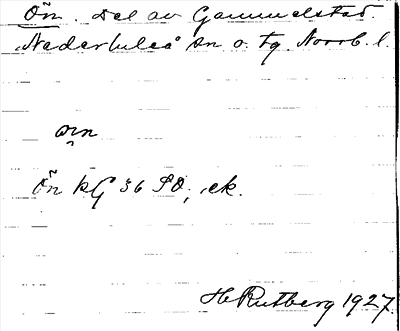 Õn. Del av Gammelstad.
Nederluleå sn o. tg. Norrb. l.
Õn kG 36 SO, ek.
H Rutberg 1927.